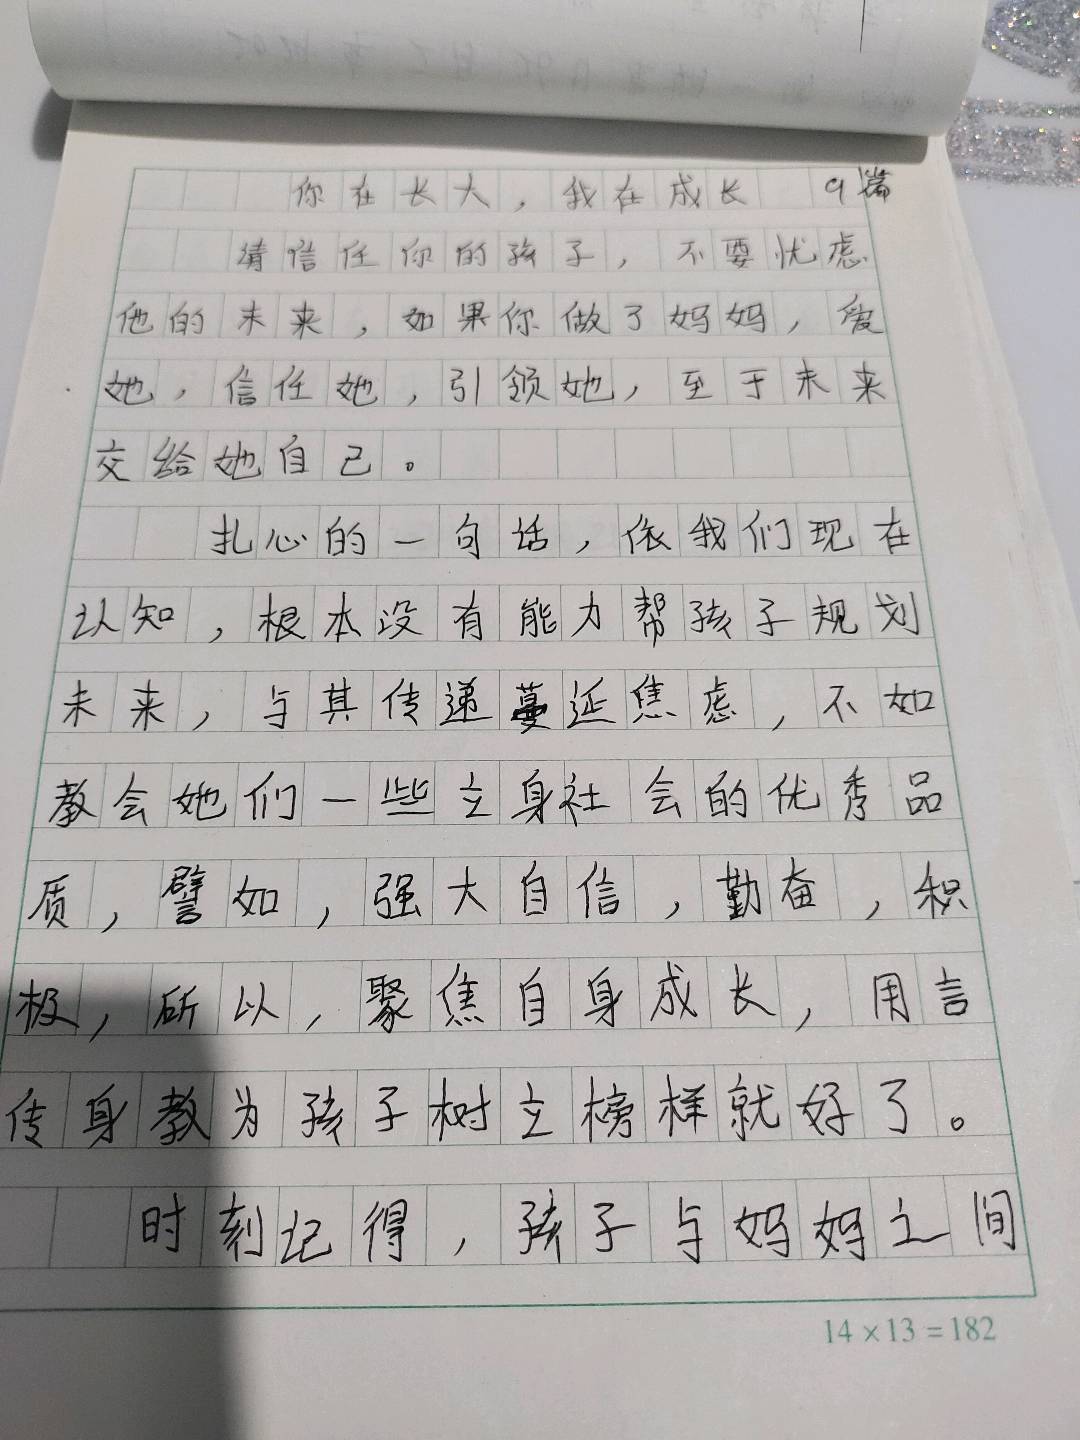 你在长大，我在成长 9篇
请信任你的孩子，不要忧虑
他的未来，如果你做了妈妈，爱
她，信任她，引领她，至于未来
交给她自己。
扎心的一句话，依我们现在
认知，根本没有能力帮孩子规划
未来，与其传递蔓延焦虑，不如
教会她们一些立身社会的优秀品
质，譬如，强大自信，勤奋，积
极，所以，聚焦自身成长，用言
传身教为孩子树立榜样就好了。
时刻记得，孩子与妈妈之间
14×13=182